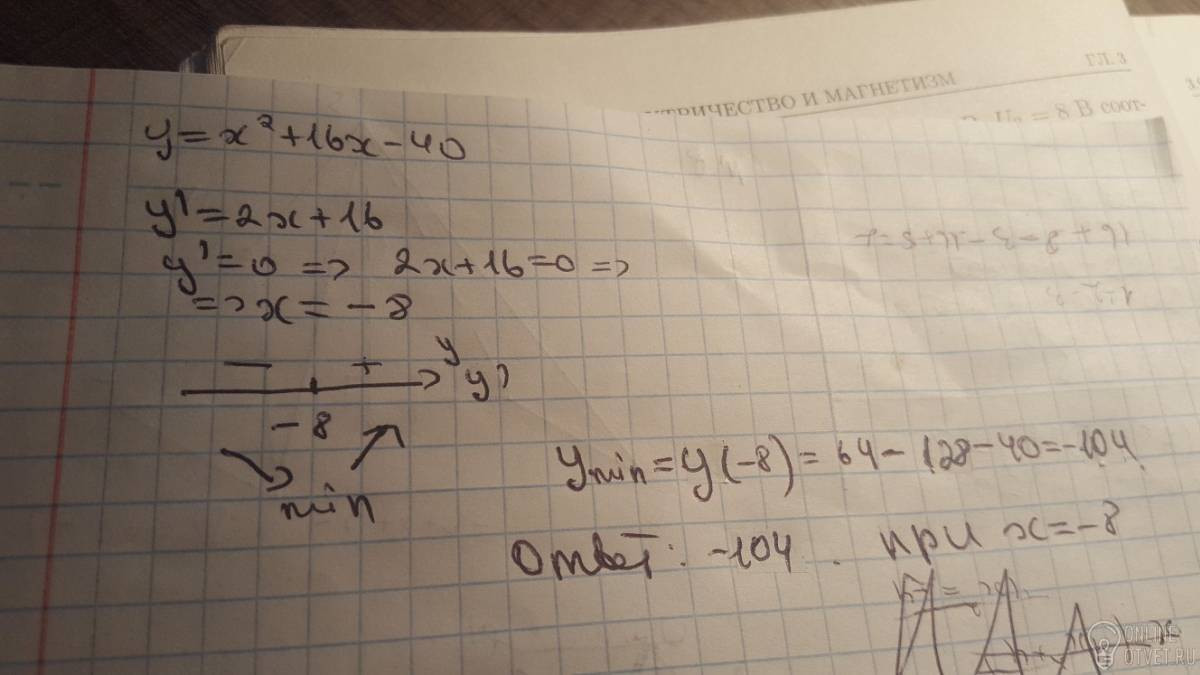 ГЛ. 3
ТРИЧЕСТВО И МАГНЕТИЗМ
= 8 В соот-
y = x² + 16x - 40
y' = 2x + 16
y' = 0 => 2x + 16 = 0 =>
=> x = - 8
- + y
y'
- 8
min
y min = y(-8) = 64 - 128 - 40 = -104
Ответ: -104. при x = -8
ONLINE
OTVET.RU